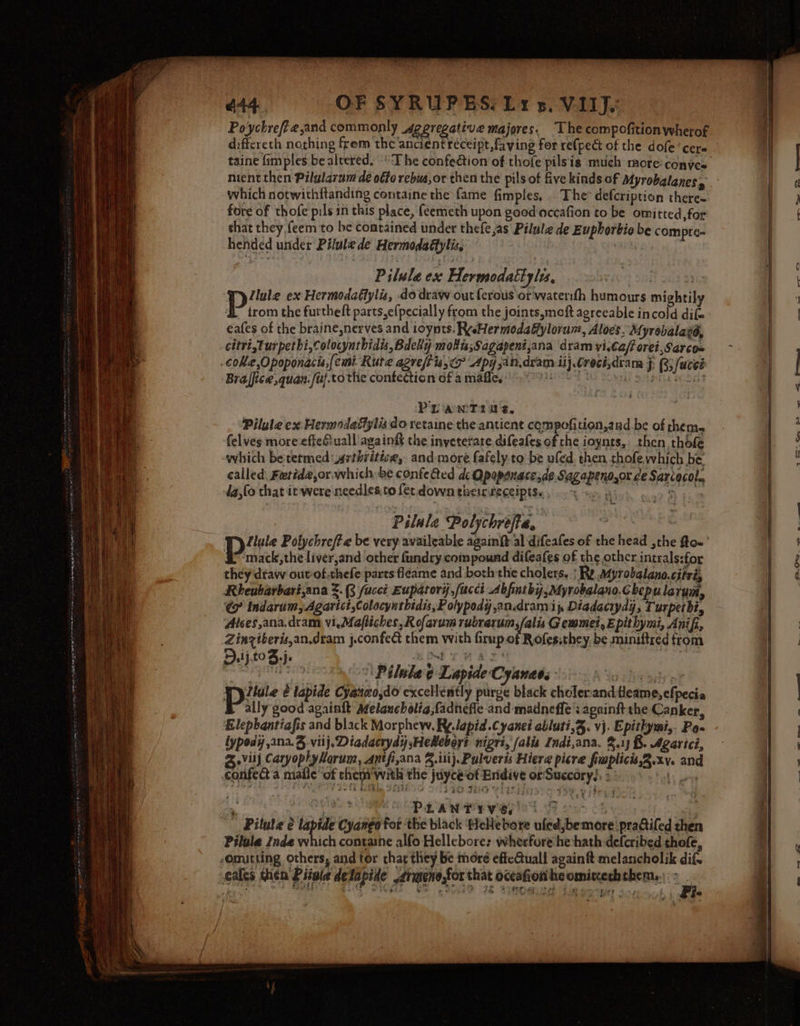 444. OF SYRUPES. LIB. VIIJ.
Poychrestæ, and commonly Aggregative majores. The composition wherof
differeth nothing frem the ancient receipt, saying for respect of the dose cer-
taine simples be altered. The confection of those pils is much more conve-
nient then Pilularum de octo rebus, or then the pils of five kinds of Myrobalanes,
which notwithstanding containe the same simples. The description there-
fore of those pils in this place, seemeth upon good occasion to be omitted, for
that they seem to be contained under these, as Pilulæ de Euphorbio be compre-
hended under Pilulæ de Hermodactylis,
Pilulæ ex Hermodactylis,
Pilulæ ex Hermodactylis, do draw out serous or waterish humours mightily
from the furthest parts, especially from the joints, most agreeable in cold dis-
eases of the braine, nerves and ioynts. ℞ Hermodactylorum, Aloes, Myrobalanō,
citri, Turpethi, Colocynthidis, Bdelly mollis, Sagapeni, ana dram vi. Castorei, Sarco-
collæ, Opoponacis, semi Rutæ agrestis, & Apy, an, dram iij. Croci, dram j. ß, succi
Brassicæ, quan. suf. to the confection of a masse.
PLANTIUS.
Pilulæ ex Hermodactylis do retaine the antient composition, and be of them-
selves more effectuall against the inveterate diseases of the ioynts, then those
which be termed Arthriticæ, and more safely to be used then those which be
called Fœtidæ, or which be confected de Opoponace, de Sagapeno, or de Sarcocol-
la, so that it were needles to set down their receipts.
Pilulæ Polychrestæ,
Pilulæ Polychrestæ be very availeable against al diseases of the head, the sto-
mack, the liver, and other sundry compound diseases of the other intrals: for
they draw out of these parts fleame and both the cholers. ℞ Myrobalano. citri,
Rheubarbari, ana ʒ. ß succi Eupatorij, succi Absinthij, Myrobalano. Chepularum,
& Indarum, Agarici, Colocynthidis, Polypodij, an. dram ij. Diadacrydij, Turpethi,
Aloes, ana. dram vi, Mastiches, Rosarum rubrarum, salis Gemmei, Epithymi, Anisi,
Zinziberis, an, dram j. confect them with sirup of Roses, they be ministred from
Ɔij. to ʒ. j.
Pilulæ è Lapide Cyaneo,
Pilulæ è lapide Cyaneo, do excellently purge black choler and fleame, especia
ally good against Melancholia, sadnesse and madnesse: against the Canker,
Elephantiasis and black Morphew. ℞. lapid. Cyanei abluti, ʒ. vj. Epithymi, Po-
lypodij, ana. ʒ viij. Diadacrydij, Hellebori nigri, salis Indi, ana. ʒ. ij ß. Agarici,
ʒ. viij Caryophyllorum, Anisi, ana ʒ. iiij. Pulveris Hieræ picræ simplicis, ʒ. xv. and
confect a masse of them with the juyce of Endive or Succory.
PLANTIVS.
Pilulæ è lapide Cyaneo for the black Hellebore used, be more practised then
Pilulæ Indæ which containe also Hellebore: wherfore he hath described those,
omitting others, and for that they be more effectuall against melancholik dis-
eases then Pilulæ de lapide Armeno, for that occasion he omitteth them.
Pi-